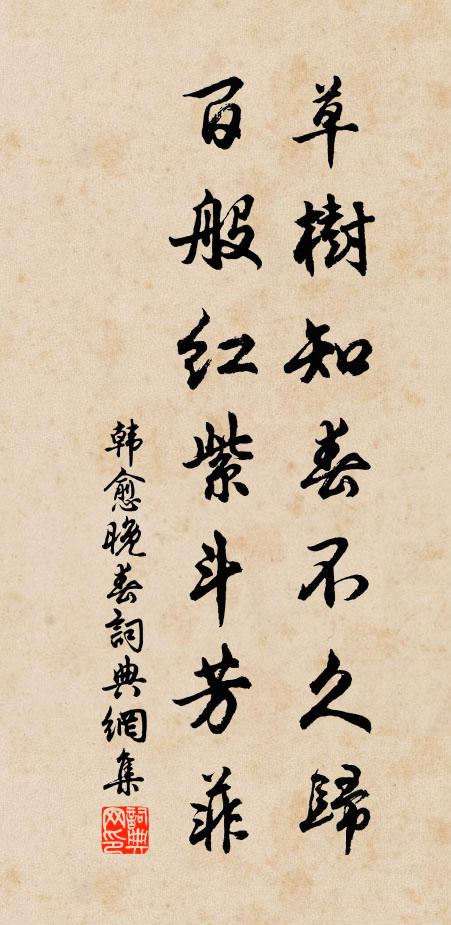 草樹知春不久歸
百般红紫斗芳菲
韩愈晚春詞典網集
詞典网印